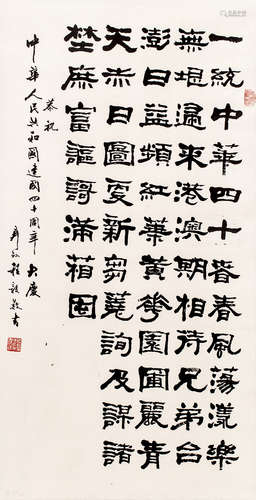 一統中華四十春風蕩漾樂
無垠邇來港澳期相待兄弟台
澎日益頻紅葉黃花園圃麗青
天赤日圖更新芻蕘詢及謀諸
埜庶富謳謌滿箱囷
恭祝
中華人民共和國建國四十周年大慶
程敬書